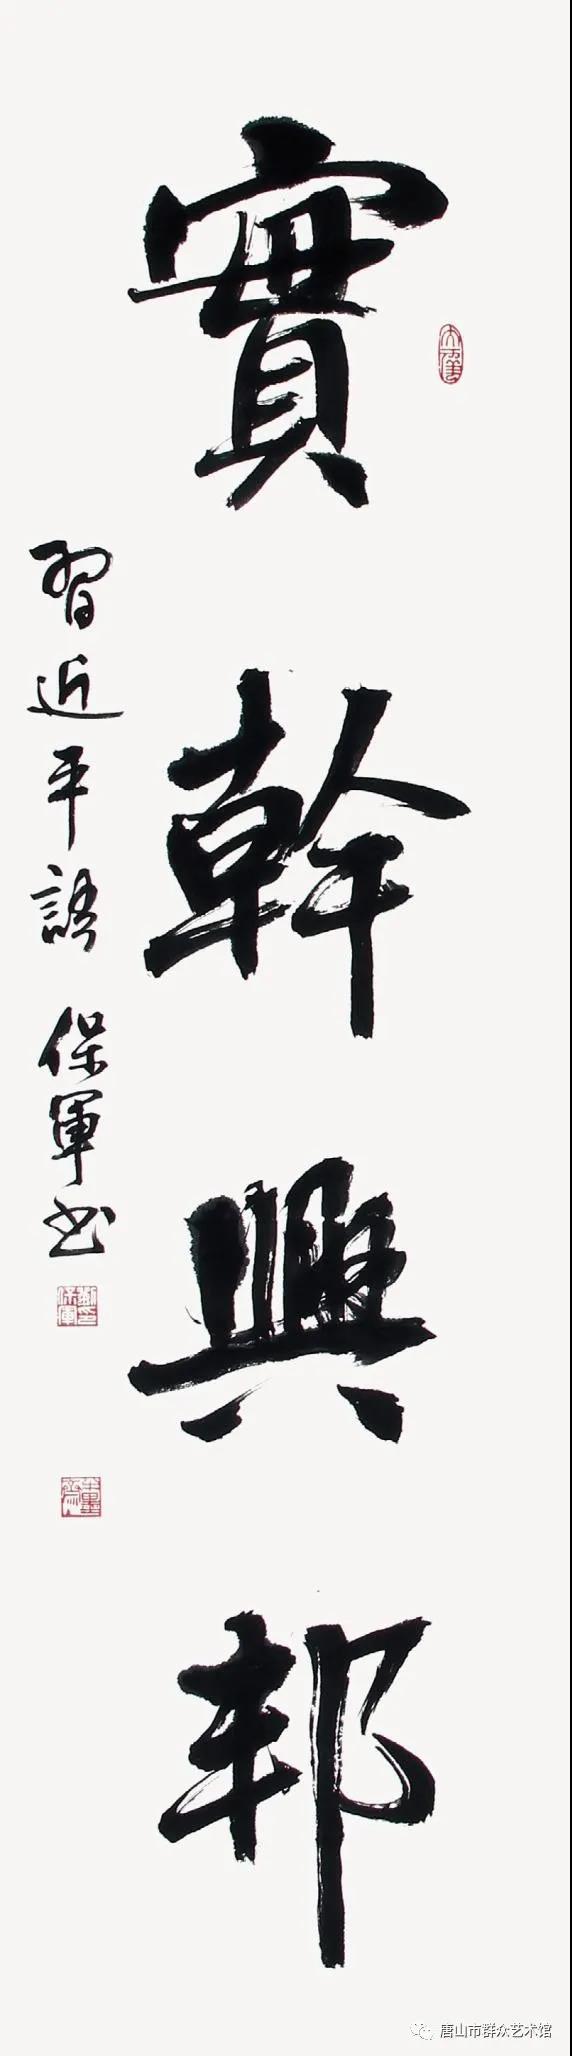 實幹興邦
習近平語 保軍书
唐山市群众艺术馆